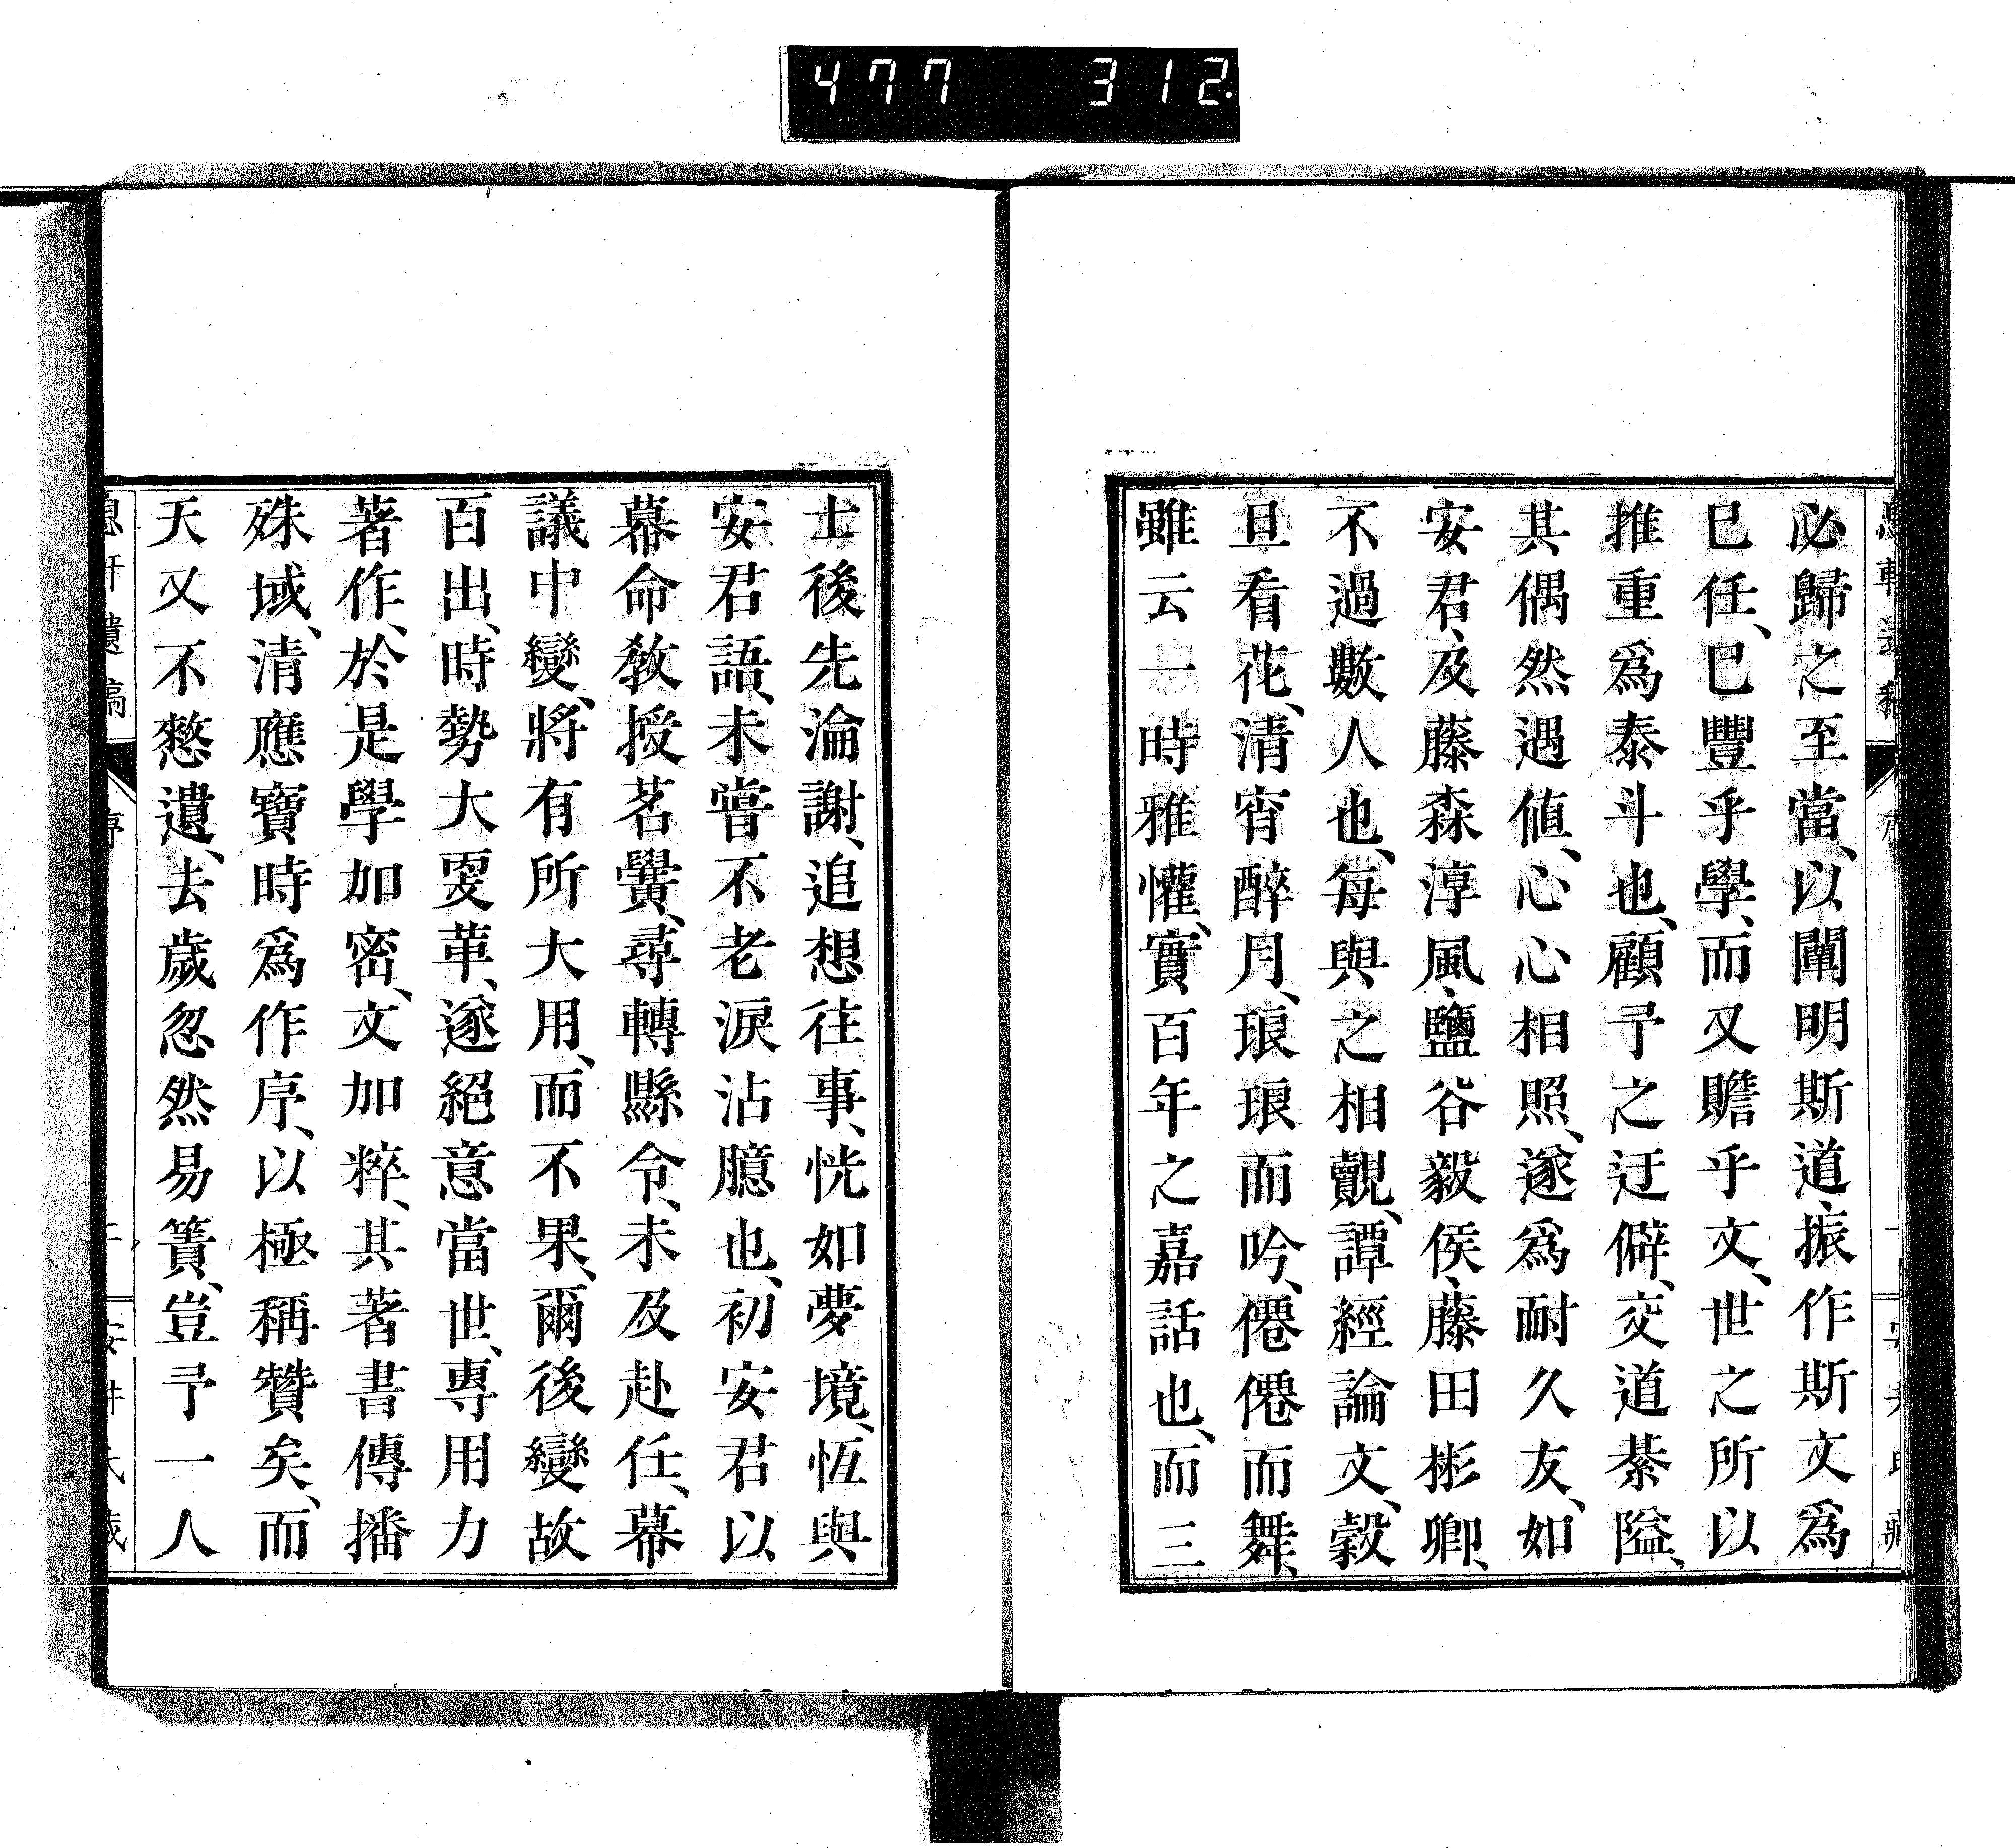 477 312
必歸之至當、以闡明斯道、振作斯文爲
已任、已豐乎學、而又贍乎文、世之所以
推重爲泰斗也、顧予之迂僻、交道綦隘、
其偶然遇値、心心相照、遂爲耐久友、如
安君、及藤森淳風、鹽谷毅侯、藤田彬卿、
不過數人也、每與之相覿、譚經論文、穀
旦看花、清宵醉月、琅琅而吟、僊僊而舞、
雖云一時雅懽、實百年之嘉話也、而三
士後先淪謝、追想往事、恍如夢境、恆與
安君語、未嘗不老淚沾臆也、初安君以
幕命敎授茗黌、尋轉縣令、未及赴任、幕
議中變、將有所大用、而不果、爾後變故
百出、時勢大耎革、遂絕意當世、專用力
著作、於是學加密、文加粹、其著書傳播
殊域、清應寶時爲作序、以極稱贊矣、而
天又不憗遺、去歲忽然易簀、豈予一人
息軒遺稿 序 安井氏藏